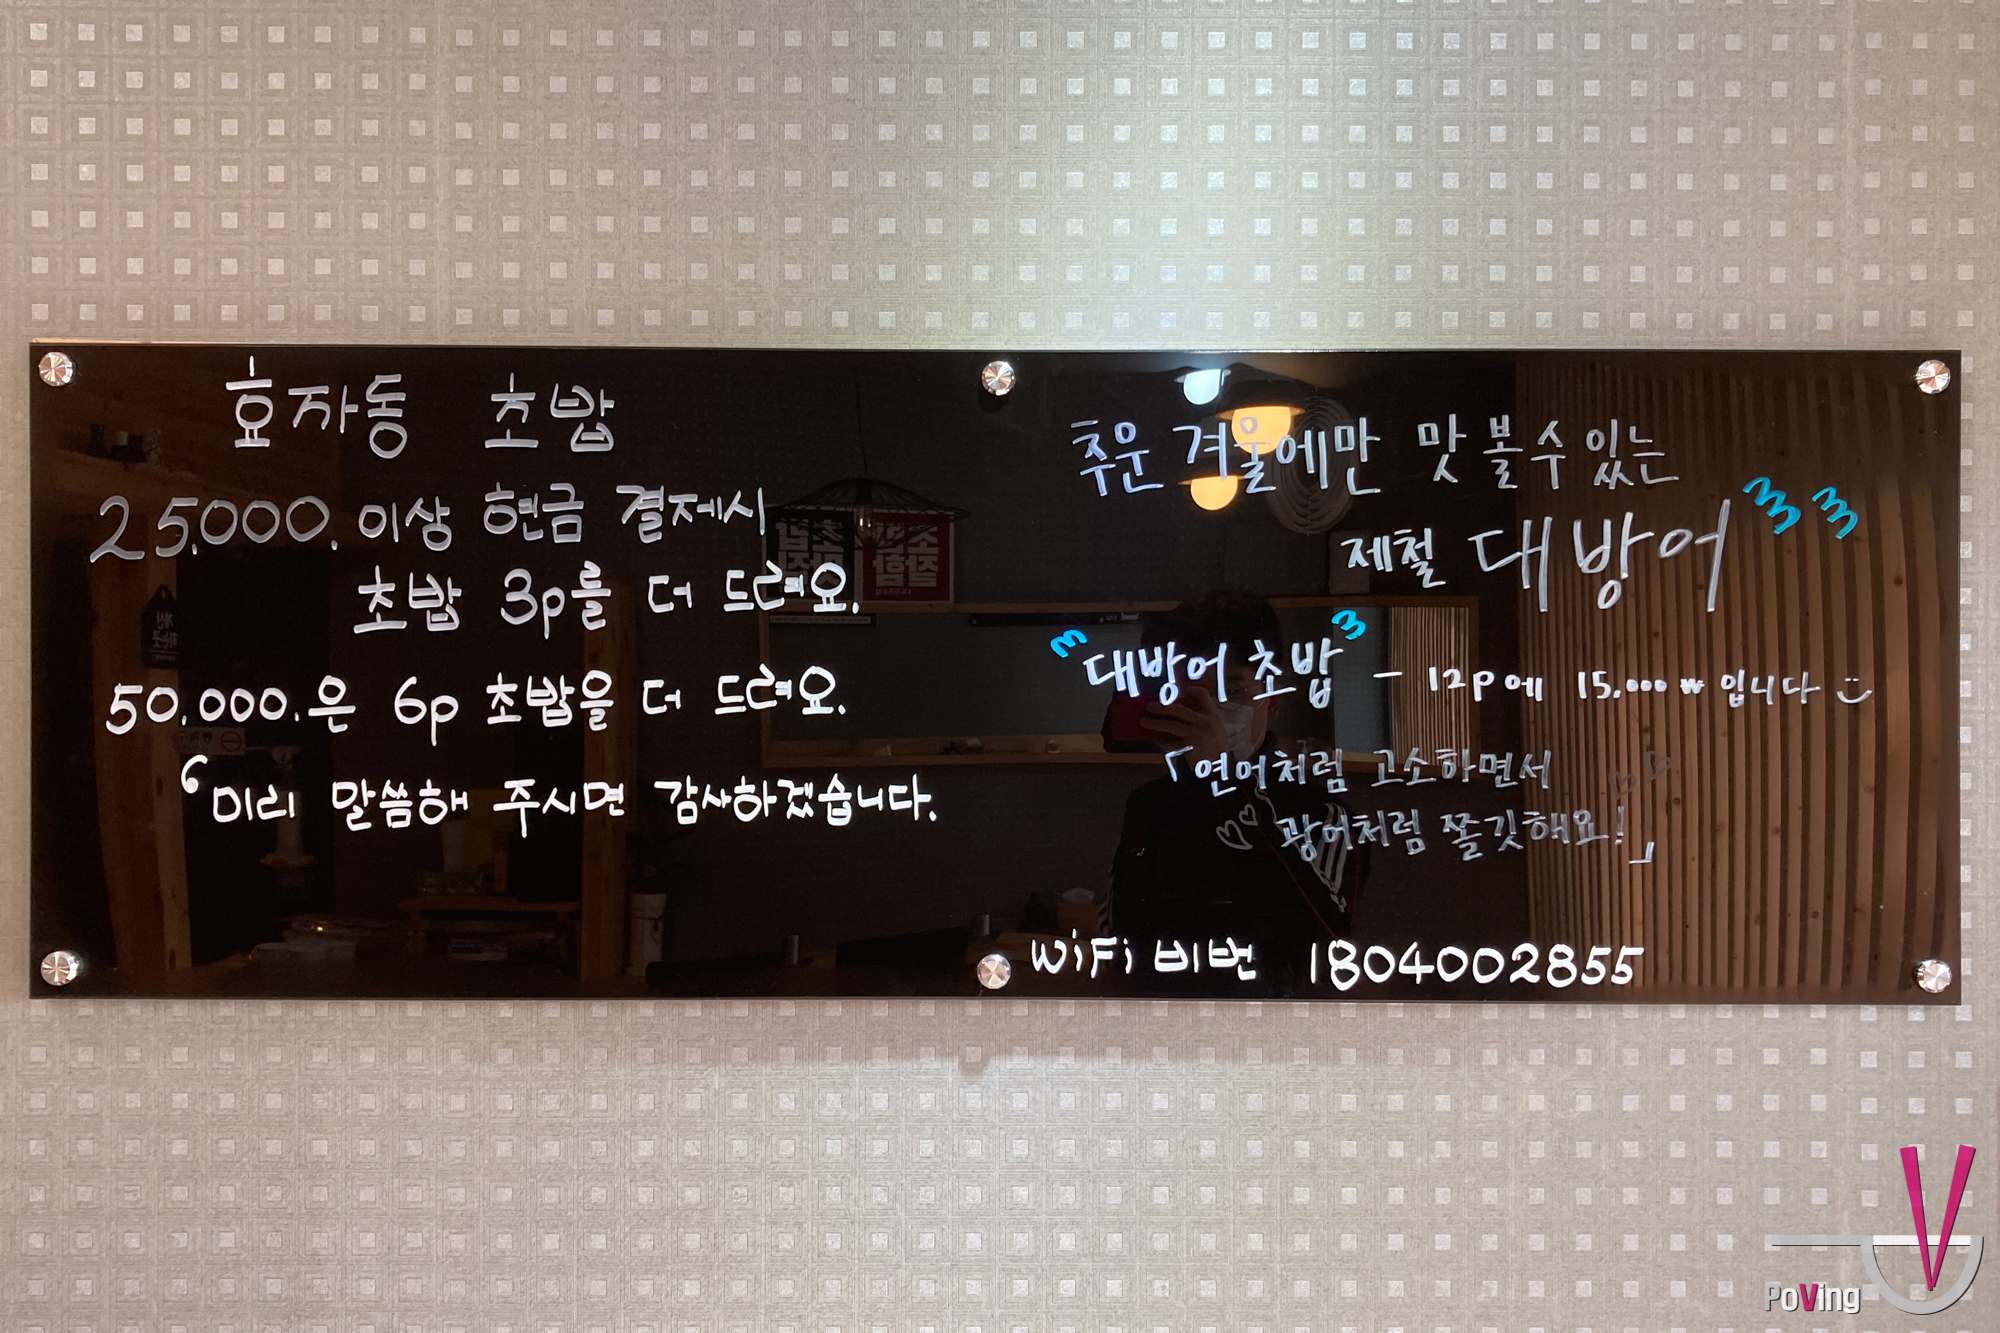 효자동 초밥
25,000. 이상 현금 결제시
초밥 3p를 더 드려요.
50,000.은 6p 초밥을 더 드려요.
미리 말씀해 주시면 감사하겠습니다.
추운 겨울에만 맛 볼 수 있는
제철 대방어
대방어 초밥 - 12p에 15,000₩ 입니다
「연어처럼 고소하면서
광어처럼 쫄깃해요!」
WiFi 비번 1804002855
PoVing